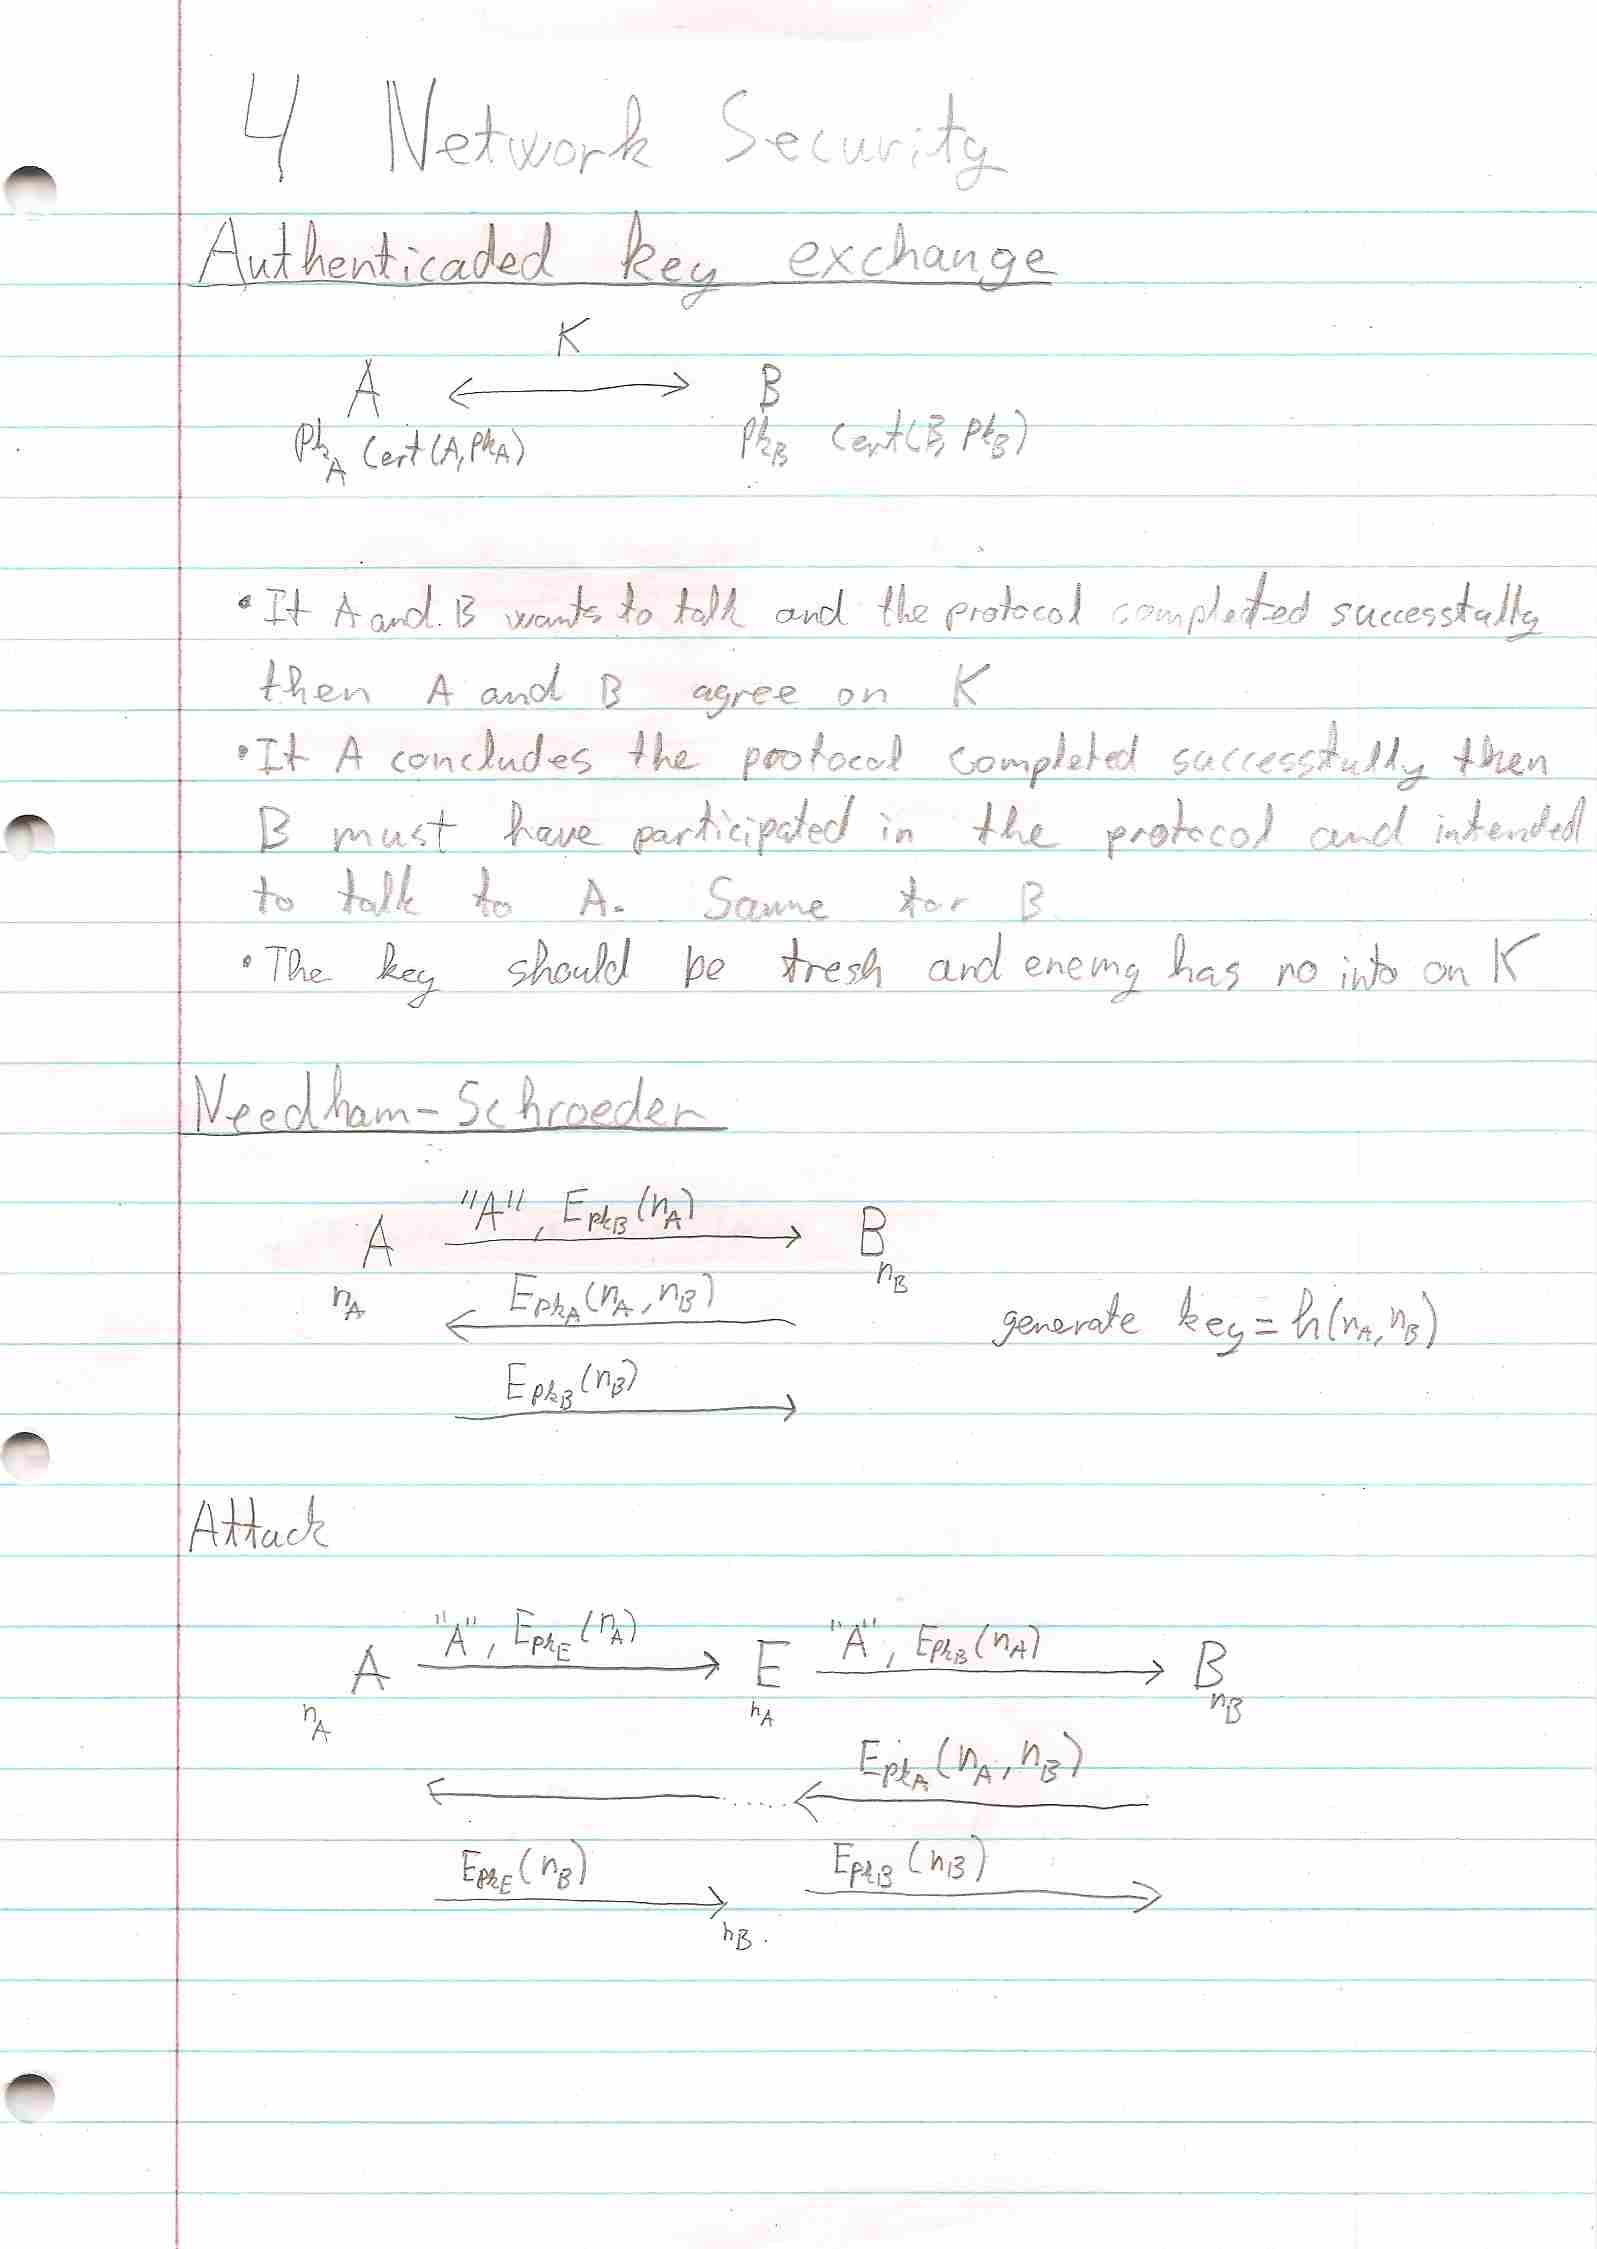 4 Network Security
Authenticaded key exchange
K
A B
pk_A Cert(A, pk_A) pk_B Cert(B, pk_B)
• If A and B wants to talk and the protocol completed successfully
then A and B agree on K
• If A concludes the protocol completed successfully then
B must have participated in the protocol and intended
to talk to A. Same for B
• The key should be fresh and enemy has no info on K
Needham-Schroeder
"A", E_pkB(n_A)
A B
n_A n_B
E_pkA(n_A, n_B)
generate key = h(n_A, n_B)
E_pkB(n_B)
Attack
"A", E_pkE(n_A) "A", E_pkB(n_A)
A E B
n_A n_A n_B
E_pkA(n_A, n_B)
E_pkE(n_B) E_pkB(n_B)
n_B